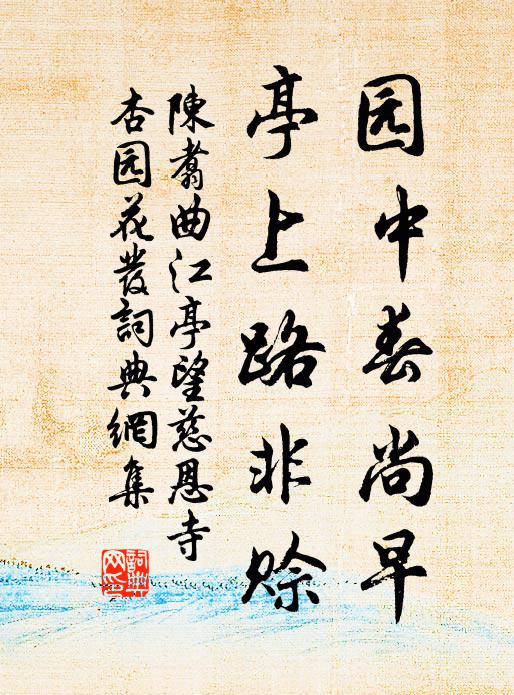 园中春尚早
亭上路非赊
陳翥曲江亭望慈恩寺
杏园花發詞典網集